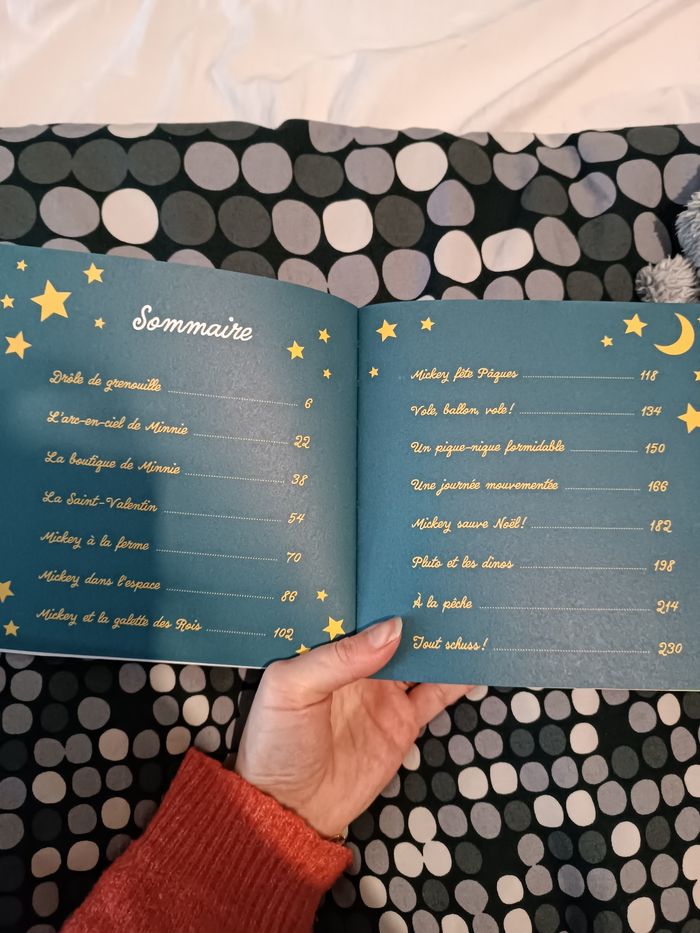 Sommaire
Drôle de grenouille 6
L'arc-en-ciel de Minnie 22
La boutique de Minnie 38
La Saint-Valentin 54
Mickey à la ferme 70
Mickey dans l'espace 86
Mickey et la galette des Rois 102
Mickey fête Pâques 118
Vole, ballon, vole ! 134
Un pique-nique formidable 150
Une journée mouvementée 166
Mickey sauve Noël ! 182
Pluto et les dinos 198
À la pêche 214
Tout schuss ! 230